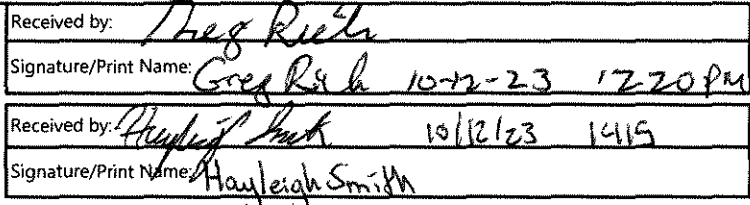 Received by: Greg Rich
Signature/Print Name: Greg Rich 10-12-23 12 20 PM
Received by: Hayleigh Smith 10/12/23 1415
Signature/Print Name: Hayleigh Smith